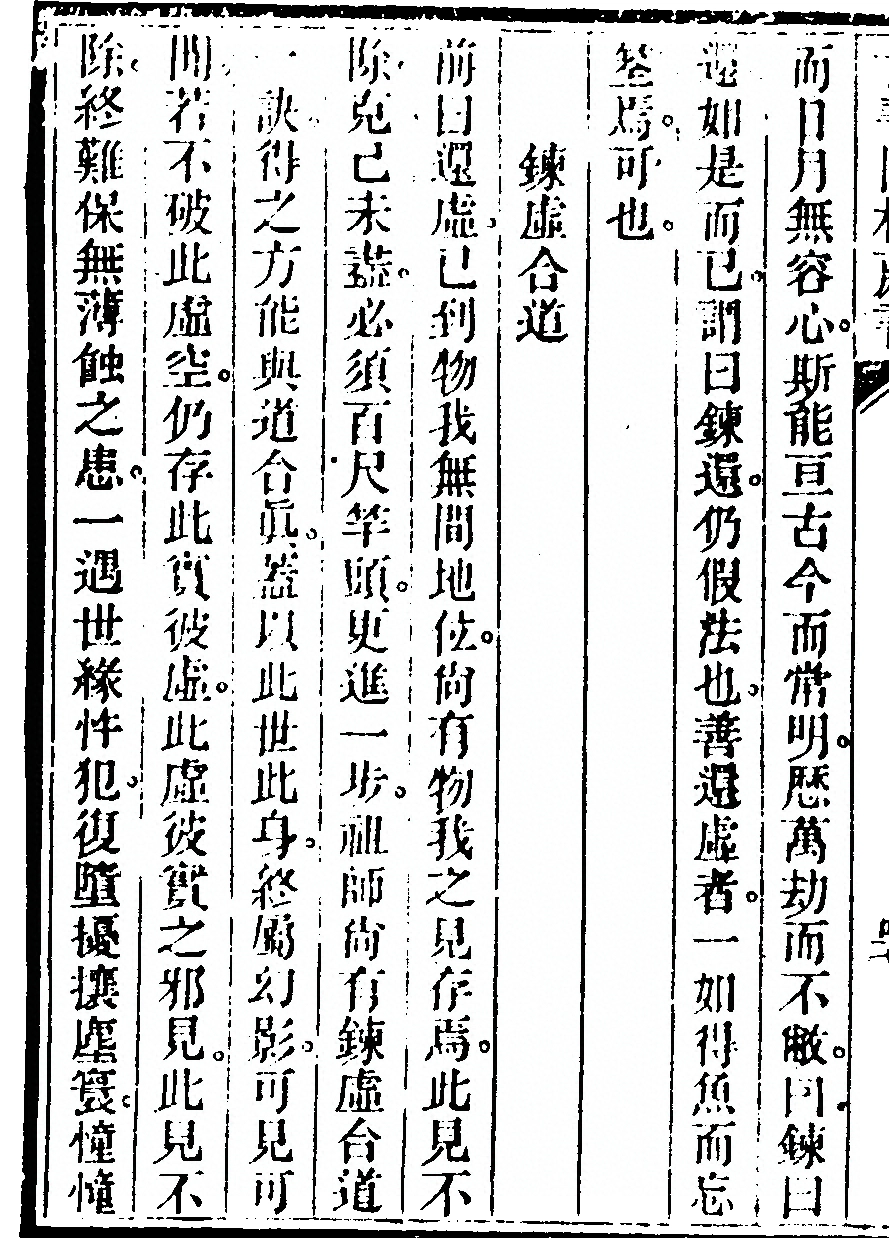 而日月無容心。斯能亘古今而常明。歷萬劫而不敝。曰鍊曰
還如是而已。謂曰鍊還。仍假法也。善還虛者。一如得魚而忘
筌焉。可也。
鍊虛合道
前曰還虛。已到物我無間地位。尙有物我之見存焉。此見不
除。克己未盡。必須百尺竿頭。更進一步。祖師尙有鍊虛合道
一訣。得之方能與道合眞。蓋以此世此身。終屬幻影。可見可
聞。若不破此虛空。仍存此實彼虛。此虛彼實之邪見。此見不
除。終難保無薄蝕之患。一遇世緣忤犯。復墮擾攘塵寰。憧憧